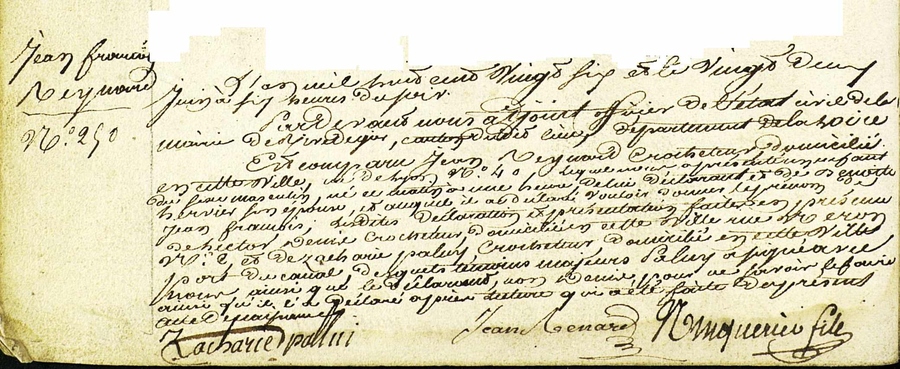 Jean francois
Reynard
N.º 250
L'an mil huit cent vingt six et le vingt deux
juin à six heures du soir.
Par Devant nous adjoint officier de l'état civil de la
mairie de Rivedegier, canton dudit lieu, département de la Loire
Est comparu Jean Reynard Crocheteur domicilié
en cette Ville, rue de Lyon N.º 40 lequel nous a présenté un enfant
du sexe masculin, né ce matin à une heure de lui Déclarant et de
hervier son épouse, et auquel il a déclaré vouloir donner le prénom de
Jean francois, lesdites Déclaration et présentation faites en présence
de hector, Denis Crocheteur domicilié en cette Ville rue
N.º 2 et de Zacharie paluy Crocheteur, domicilié en cette Ville
port du canal, lesquels témoins majeurs paluy a signé avec
nous ainsi que le Déclarant, non Denis pour ne savoir le faire
ainsi qu'il l'a Déclaré après lecture qui a été faite du présent
acte
Zacharie palui
Jean Renard
fils